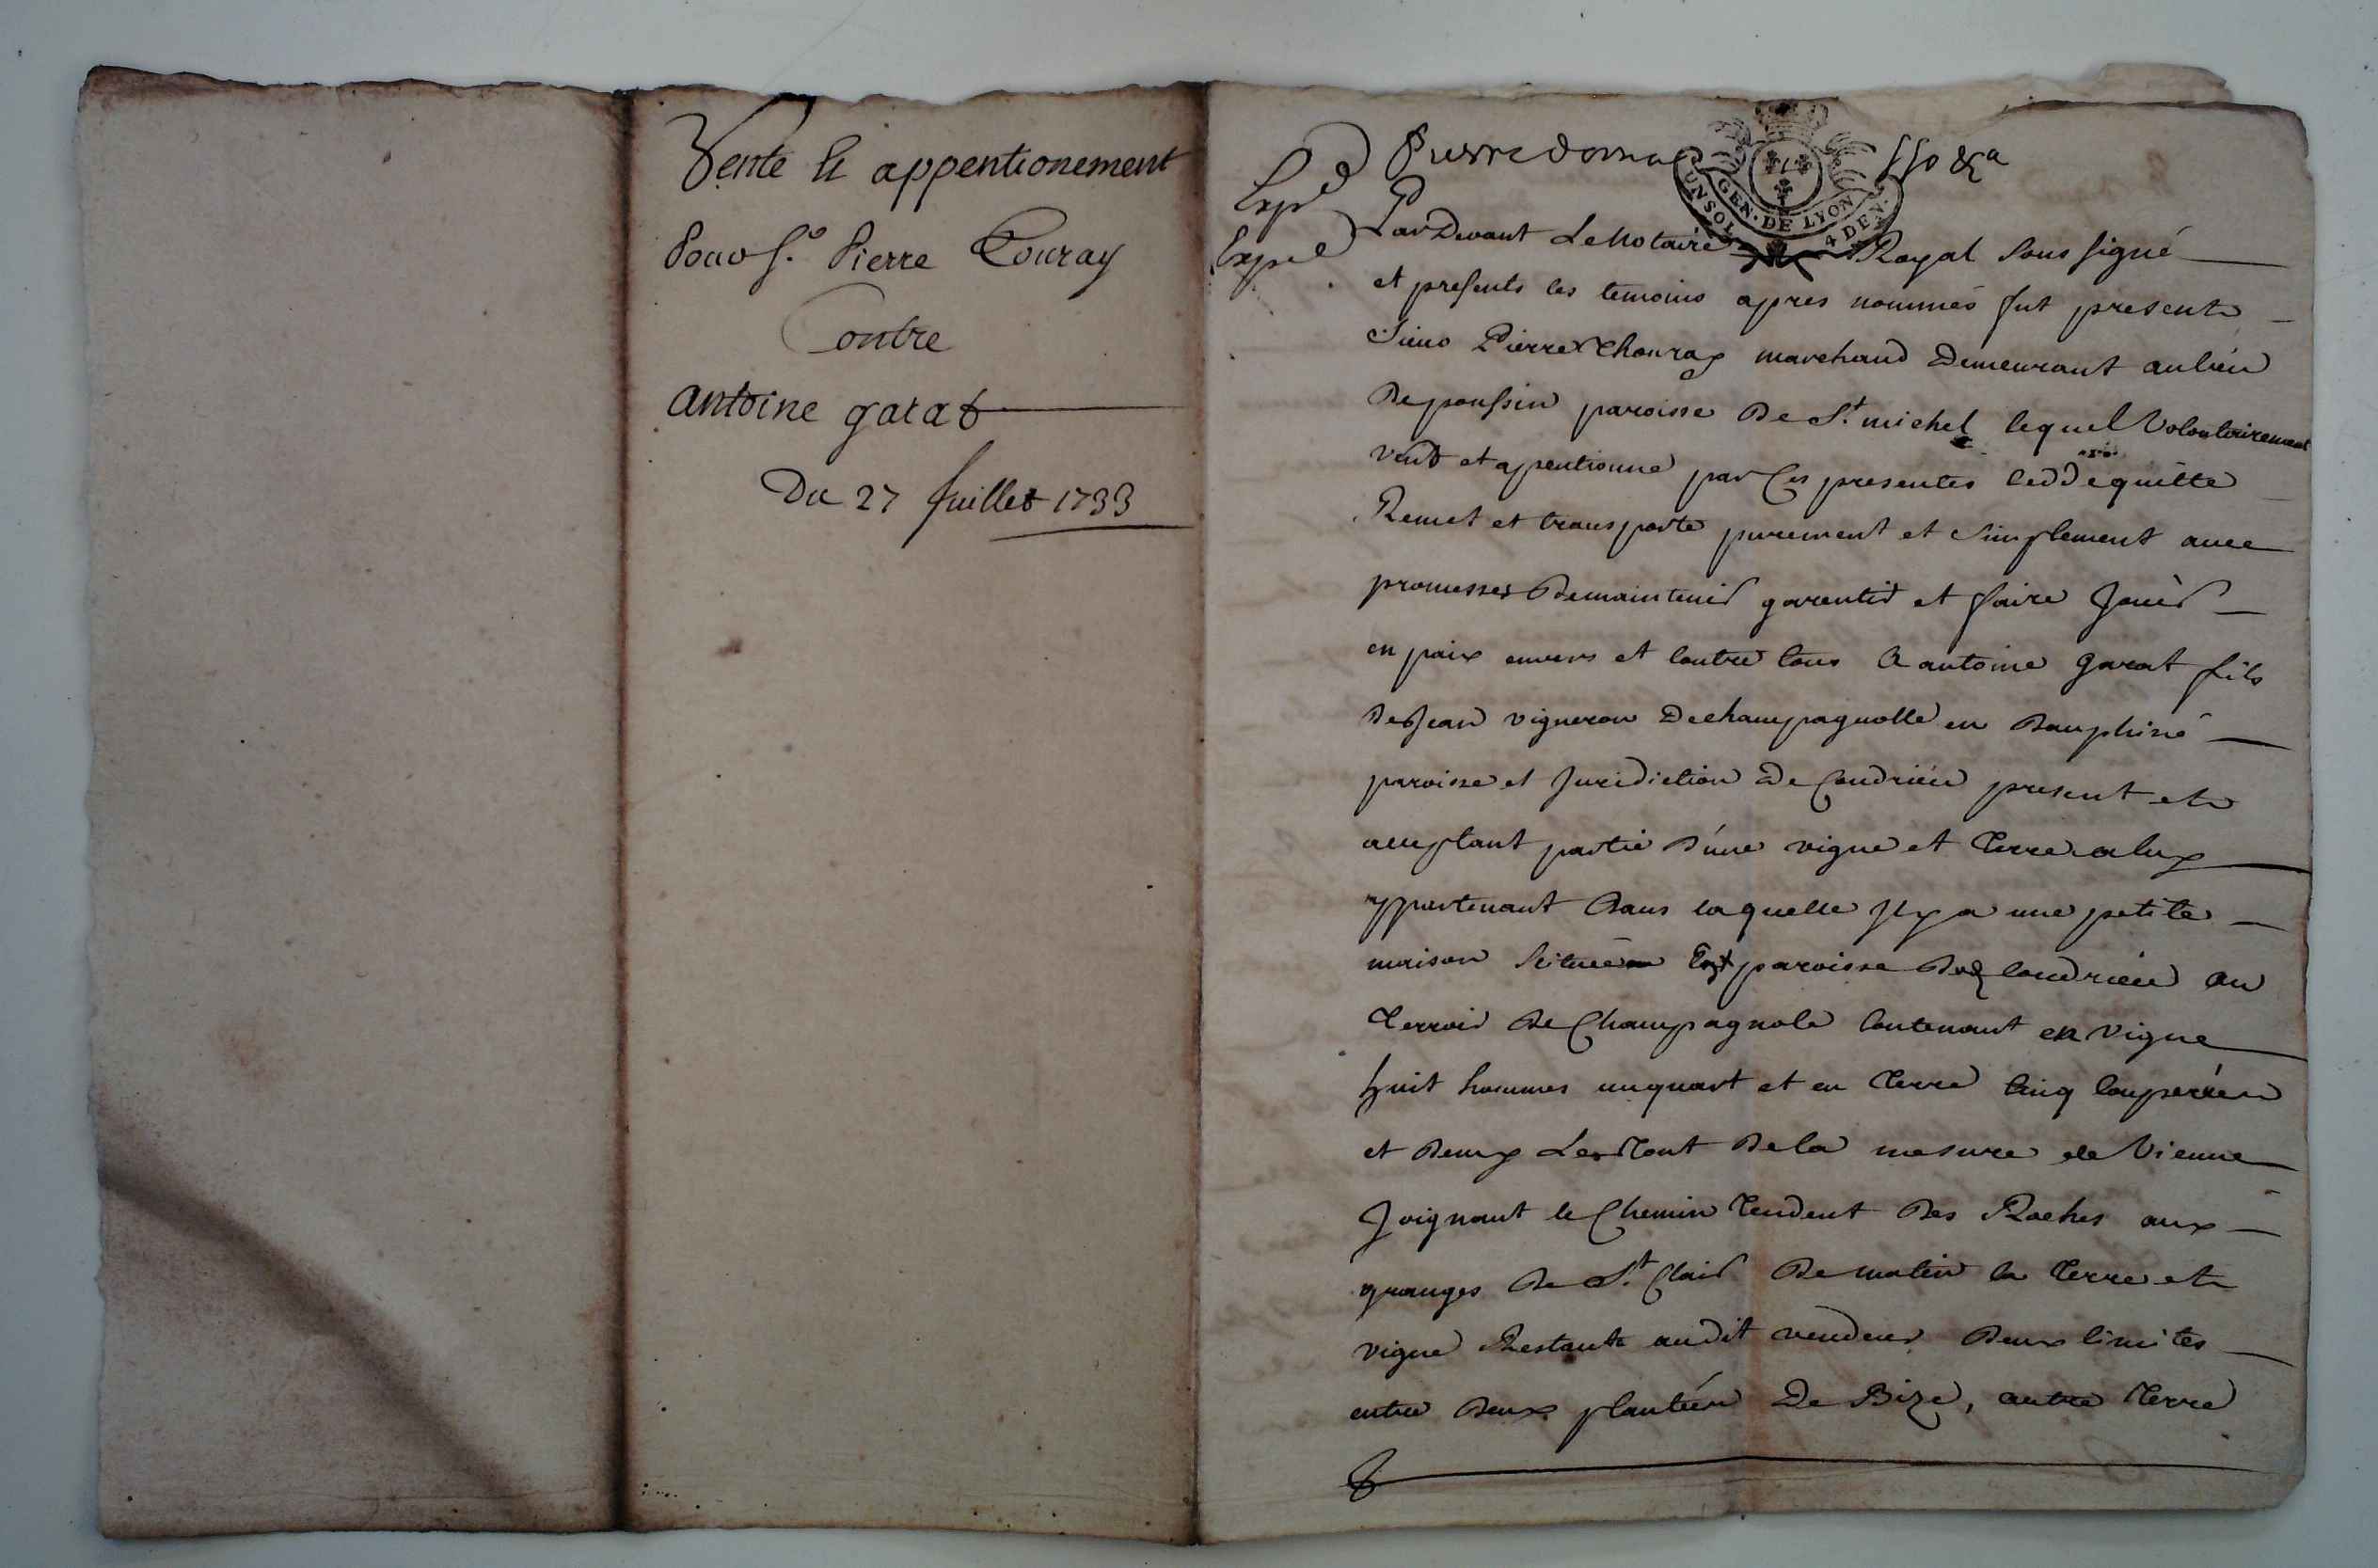 Vente Et appentionement
Pour S.r Pierre Chouray
Contre
antoine garat
Du 27 Juillet 1733
Exp.é
Expé
GEN. DE LYON
UN SOL 4 DEN.
Pardevant Le Notaire Royal Soussigné
et presents les temoins apres nommés fut present
Sieur Pierre Chouray marchand Demeurant au lieu
De poussin paroisse De St. michel lequel Volontairement
vend et apentionne par Ces presentes cedde quitte
Remet et transporte purement et Simplement avec
promesses De maintenir garentir et faire Jouir
en paix envers et Contre tous A antoine garat fils
De Jean vigneron De champagnolle en Dauphiné
paroisse et Juridiction De Condrieu present et
acceptant partie D'une vigne et Terre a luy
appartenant Dans laquelle Il y a une petite
maison Scituée paroisse De Condrieu au
Terroir De Champagnole Contenant en vigne
huit hommes un quart et en Terre Cinq Couperées
et Deux Le Tout De la mesure de Vienne
Joignant le Chemin Tendent Des Roches aux
granges De St. Clair De matin la Terre et
vigne Restante audit vendeur Deux limites
entre Deux plantées De Bize, autre Terre